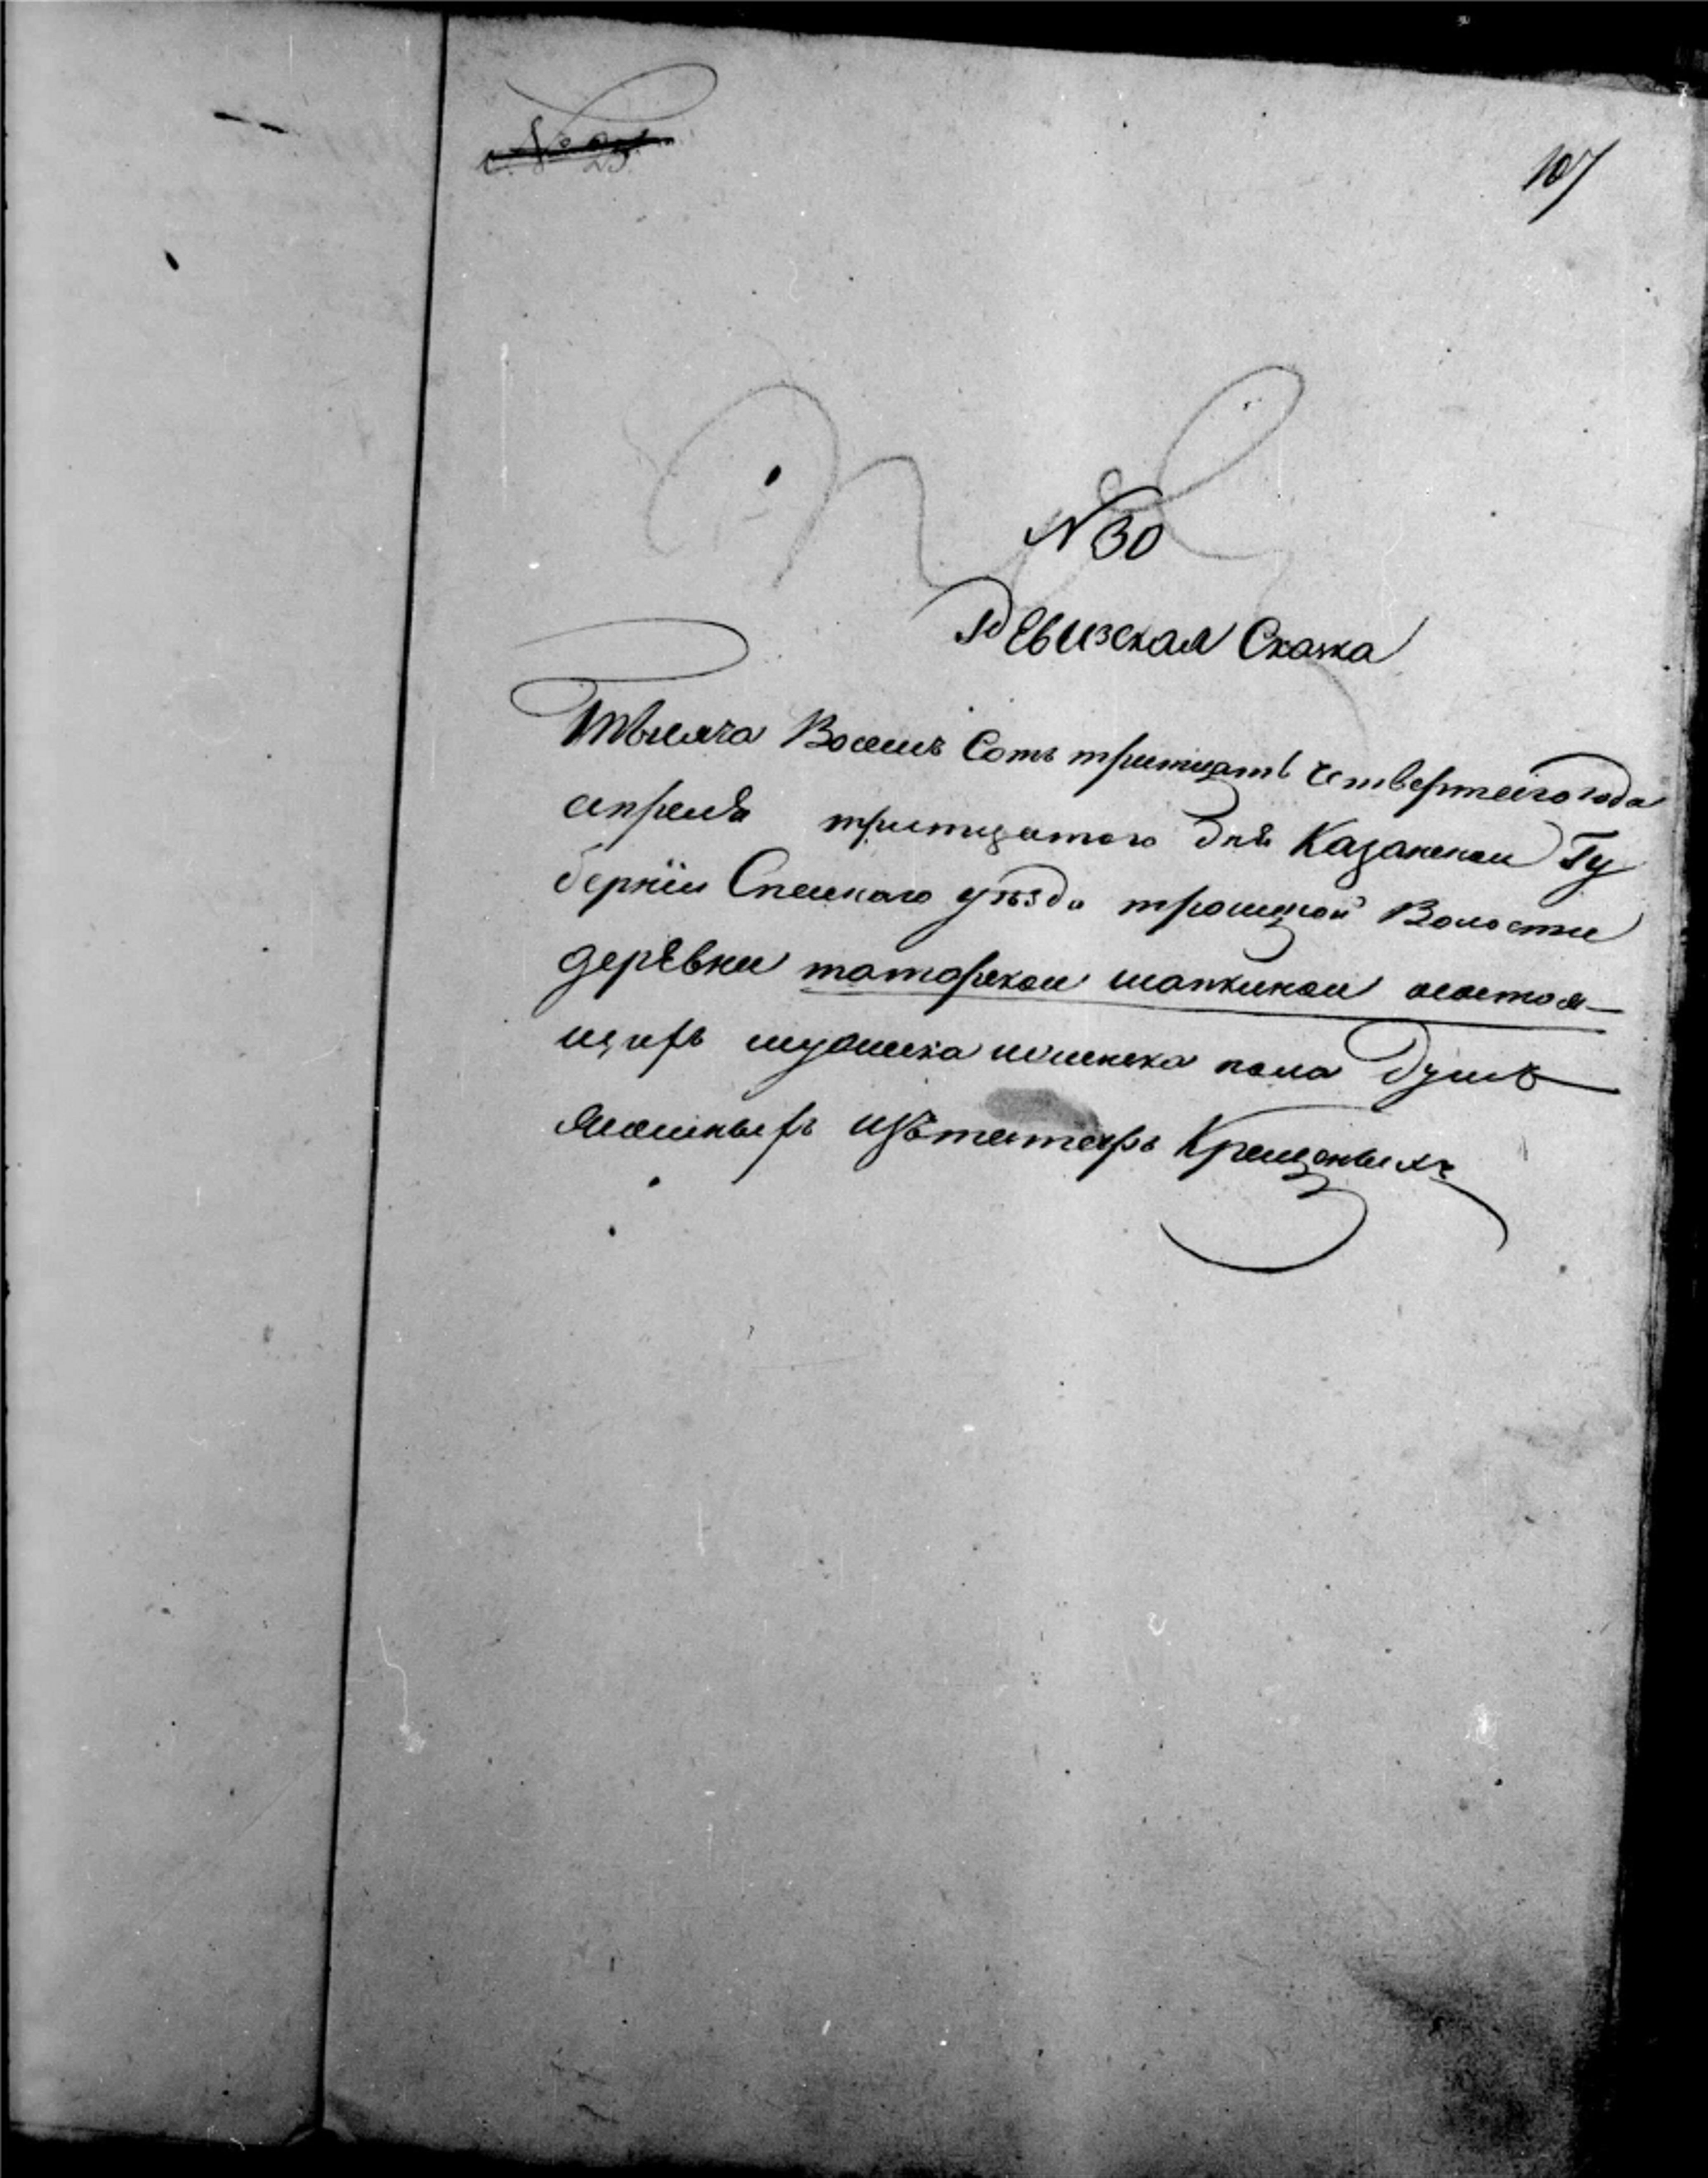 № 25.
107
N 30
Ревизская Скаска
Тысяча Восемь Сотъ тритцать четвертаго года
апреля тритцатого дня Казанской Гу
бернiи Спаскаго уезда троицкой Волости
деревни татарской шапкиной остоя
щихъ мужеска и женска пола душъ
ясашныхъ изъ татаръ Крещеныхъ